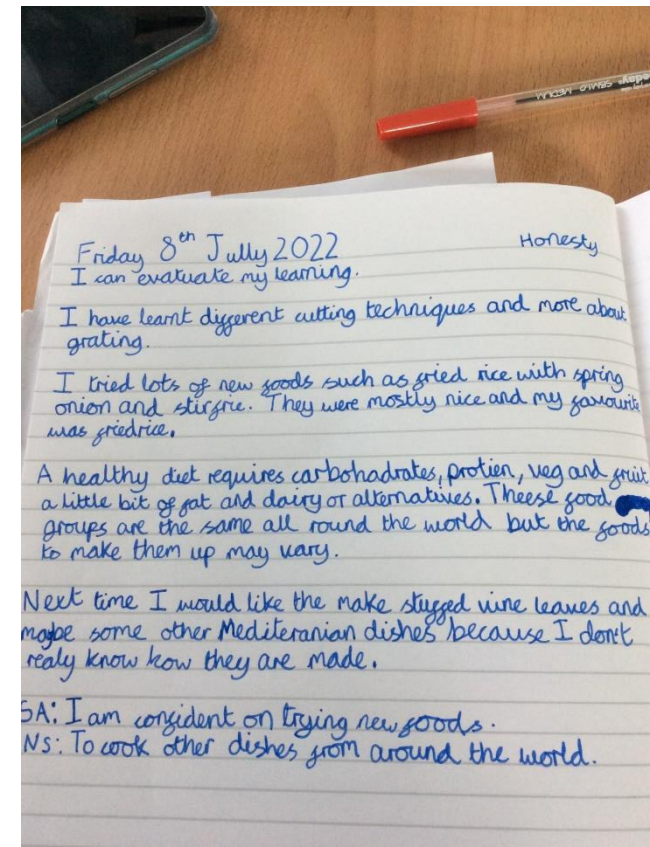 Friday 8th Jully 2022
Honesty
I can evatuate my learning.
I have learnt different cutting techniques and more about
grating.
I tried lots of new foods such as fried rice with spring
onion and stirfrie. They were mostly nice and my favourite
was friedrice.
A healthy diet requires carbohadrates, protien, veg and fruit
a little bit of fat and dairy or alternatives. Theese food
groups are the same all round the world but the foods
to make them up may vary.
Next time I would like the make stuffed vine leaves and
maybe some other Mediteranian dishes because I don't
realy know how they are made.
SA: I am confident on trying new foods.
NS: To cook other dishes from around the world.
STABILO MEDIUM